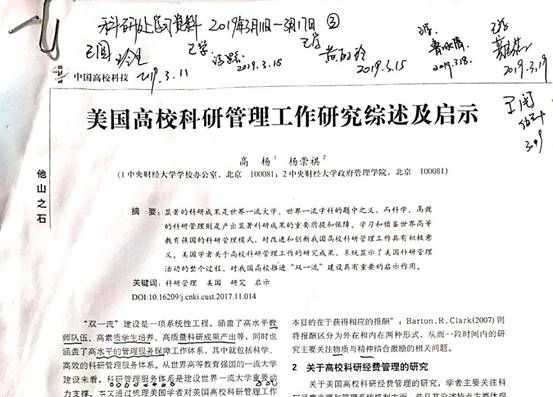 科研处学习资料 2019年3月11日-3月17日 ③
2019.3.11
2019.3.15
2019.3.15
2019.3.18.
2019.3.19
中国高校科技
美国高校科研管理工作研究综述及启示
高 杨 1 杨崇祺 2
(1 中央财经大学学校办公室，北京 100081；2 中央财经大学政府管理学院，北京 100081)
他山之石
摘 要：显著的科研成果是世界一流大学、世界一流学科的题中之义，而科学、高效
的科研管理则是产出显著科研成果的重要前提和保障。学习和借鉴世界高等
教育强国的科研管理模式，对改进和创新我国高校科研管理工作具有积极意
义。美国学者关于高校科研管理工作的研究成果，系统显示了美国科研管理
活动的整个过程，对我国高校推进“双一流”建设具有重要的启示作用。
关键词：科研管理 美国 研究 启示
DOI:10.16209/j.cnki.cust.2017.11.014
“双一流”建设是一项系统性工程，涵盖了高水平教
师队伍、高素质学生培养、高质量科研成果产出等，同时也
涵盖了高水平的管理服务保障工作体系，其中就包括科学、
高效的科研管理服务体系。从世界高等教育强国的一流大学
建设来看，科研管理服务体系是建设世界一流大学重要动
力支撑。本文通过梳理美国学者对美国高校科研管理工作
本目的在于获得相应的报酬”；Barton.R.Clark(2007) 则
将报酬区分为外在和内在两种形式，从而一段时间内的研
究主要关注物质与精神结合激励的相关问题。
2 关于高校科研经费管理的研究
关于美国高校科研经费管理的研究，学者主要关注科